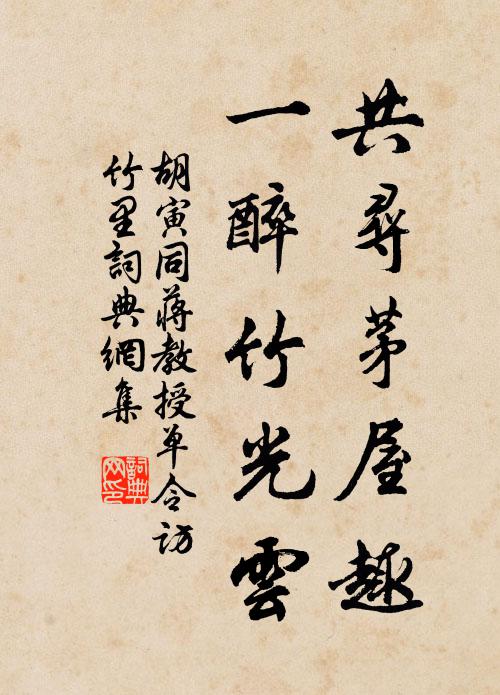 共尋茅屋趣
一醉竹光雲
胡寅同蔣教授単令訪
竹里詞典網集
詞典
网印